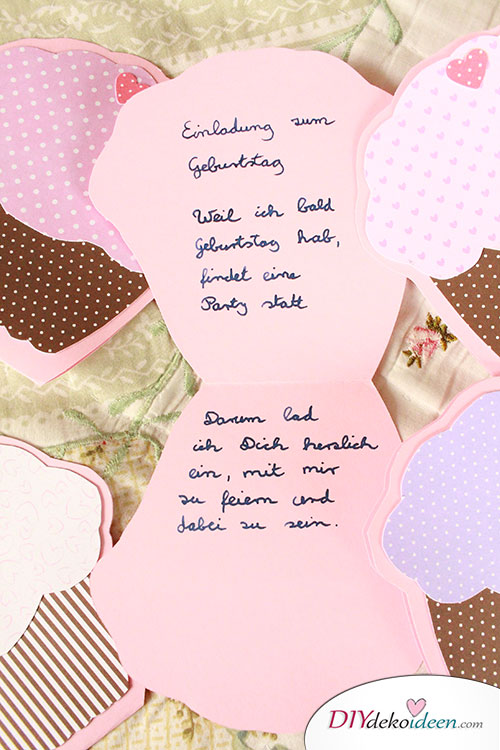 Einladung zum
Geburtstag
Weil ich bald
Geburtstag hab,
findet eine
Party statt
Darum lad
ich Dich herzlich
ein, mit mir
zu feiern und
dabei zu sein.
DIYdekoideen.com